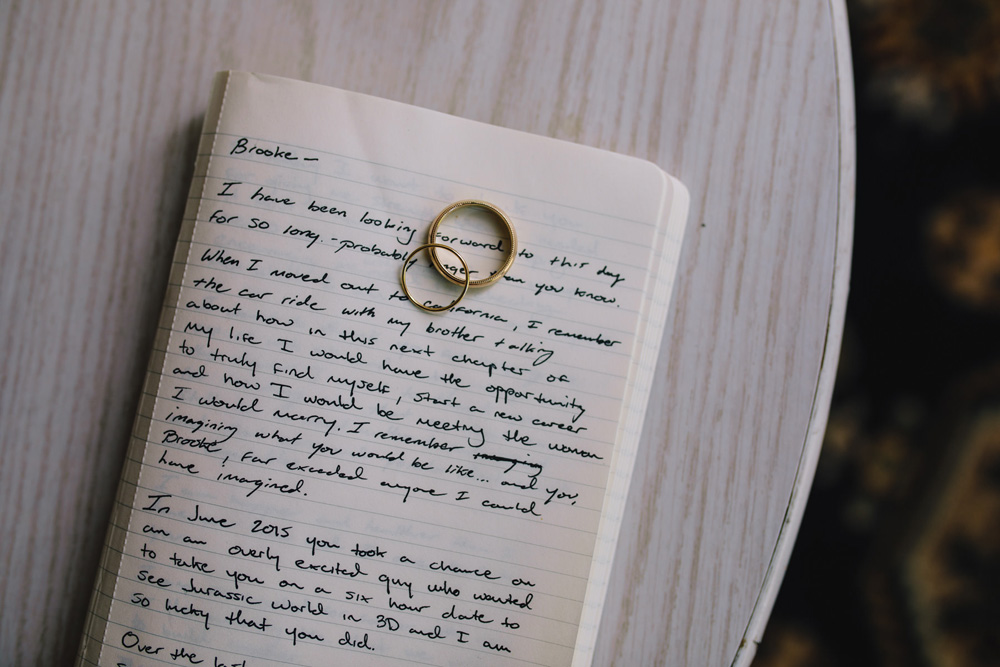 Brooke —
I have been looking forward to this day
for so long. - probably longer than you know.
When I moved out to California, I remember
the car ride with my brother talking
about how in this next chapter of
my life I would have the opportunity
to truly find myself, start a new career
and how I would be meeting the woman
I would marry. I remember
imagining what you would be like... and you,
Brooke, far exceeded anyone I could
have imagined.
In June 2015 you took a chance on
an an overly excited guy who wanted
to take you on a six hour date to
see Jurassic World in 3D and I am
so lucky that you did.
Over the last